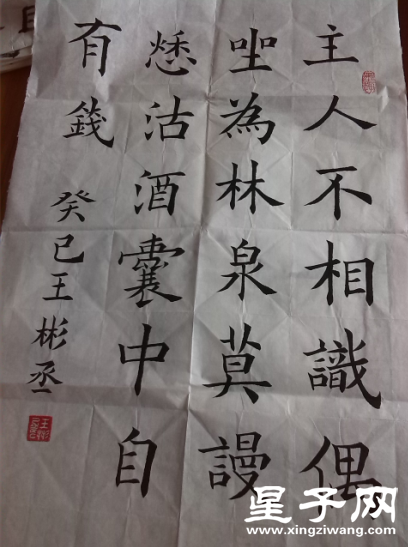 主人不相識偶
坐為林泉莫謾
愁沽酒囊中自
有錢
癸巳王彬丞
星子网
www.xingziwang.com